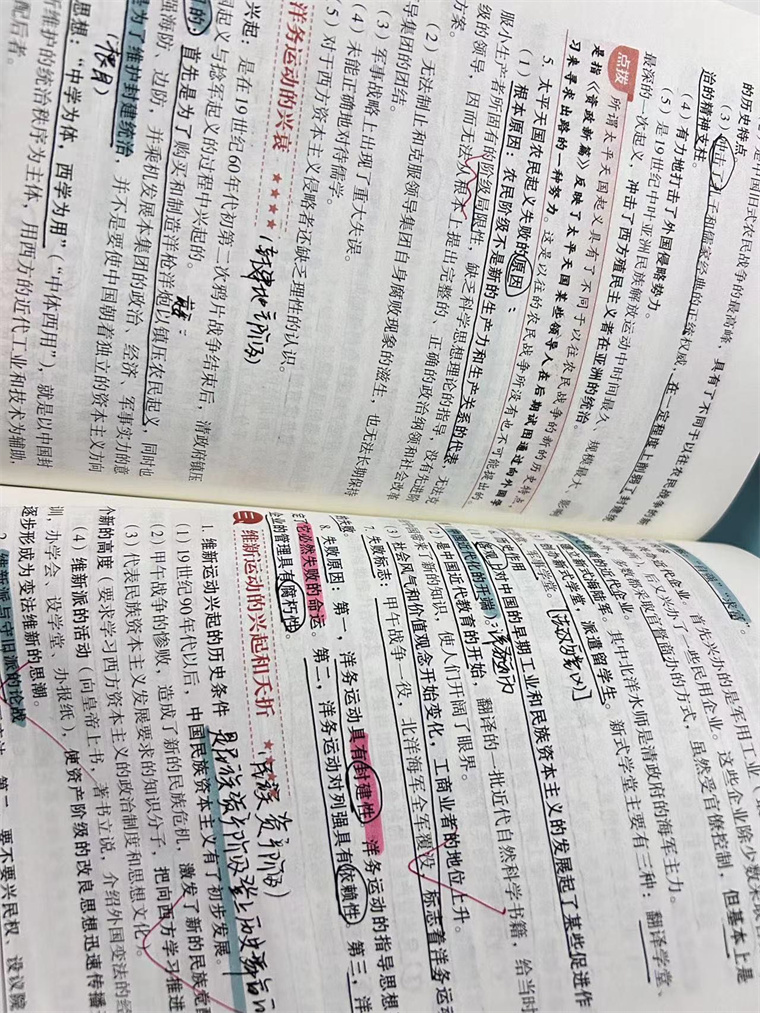 的历史特点
(3)冲击了孔子和儒家经典的正统权威,在一定程度上削弱了封建统
治的精神支柱。
(4)有力地打击了外国侵略势力。
(5)是19世纪中叶亚洲民族解放运动中时间最久、规模最大、影响
最深的一次起义,冲击了西方殖民主义者在亚洲的统治。
点拨 所谓太平天国起义具有了不同于以往农民战争的新的历史特点,
是指《资政新篇》反映了太平天国某些领导人在后期试图通过向外国学
习来寻求出路的一种努力。这是以往的农民战争所没有也不可能提出的。
5. 太平天国农民起义失败的原因:
(1)根本原因:农民阶级不是新的生产力和生产关系的代表,无法克
服小生产者所固有的阶级局限性,缺乏科学思想理论的指导,没有先进阶
级的领导,因而无法从根本上提出完整的、正确的政治纲领和社会改革
方案。
(2)无法制止和克服领导集团自身腐败现象的滋生,也无法长期保持
导集团的团结。
(3)军事战略上出现了重大失误。
(4)未能正确地对待儒学。
(5)对于西方资本主义侵略者还缺乏理性的认识。
洋务运动的兴衰 ★★★★ (封建地主阶级)
兴起:是在19世纪60年代初第二次鸦片战争结束后,清政府镇压
国起义与捻军起义的过程中兴起的。
目的:首先是为了购买和制造洋枪洋炮以镇压农民起义,同时也
强海防、边防,并乘机发展本集团的政治、经济、军事实力的意
是为了维护封建统治,并不是要使中国朝着独立的资本主义方向
思想:“中学为体,西学为用”(“中体西用”),就是以中国封
所维护的统治秩序为主体,用西方的近代工业和技术为辅助,
配后者。
首先兴办的是军用工业
办近代企业。
后又兴办了一些民用企业。这些企业除少数采取官
多数都采取官督商办的方式,虽然受官僚控制,但基本上是
的近代企业。
建立新式海陆军。其中北洋水师是清政府的海军主力。
创办新式学堂,派遣留学生。新式学堂主要有三种:翻译学堂、
军事学堂。
历史作用
对中国的早期工业和民族资本主义的发展起了某些促进作
国近代化的开端)。
(2)是中国近代教育的开始,翻译的一批近代自然科学书籍,给当时
带来了新的知识,使人们开阔了眼界。
(3)社会风气和价值观念开始变化,工商业者的地位上升。
7. 失败标志:甲午战争一役,北洋海军全军覆没,标志着洋务运动
失败。
8. 失败原因:第一,洋务运动具有封建性。洋务运动的指导思想
定了它必然失败的命运。第二,洋务运动对列强具有依赖性。第三,洋
企业的管理具有腐朽性。
三 维新运动的兴起和夭折 ★★★★ (民族资产阶级)
1. 维新运动兴起的历史条件
(1)19世纪90年代以后,中国民族资本主义有了初步发展。
(2)甲午战争的惨败,造成了新的民族危机,激发了新的民族觉醒
(3)代表民族资本主义发展要求的知识分子,把向西方学习推进
个新的高度(要求学习西方资本主义的政治制度和思想文化)。
(4)维新派的活动(向皇帝上书,著书立说,介绍外国变法的经
训,办学会、设学堂、办报纸),使资产阶级的改良思想迅速传播,
逐步形成为变法维新的思潮。
2. 维新派与守旧派的论战
第二,要不要兴民权、设议院